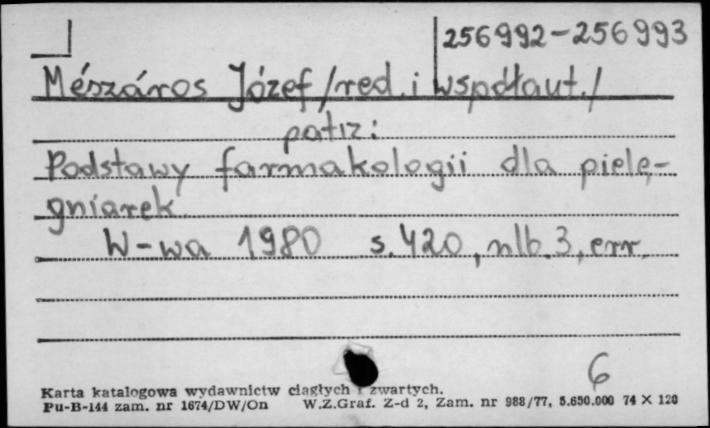 256992-256993
Mészáros Józef /red. i współaut./
patrz:
Podstawy farmakologii dla pielę-
gniarek
W-wa 1980 s. 420, nlb. 3, err.
6
Karta katalogowa wydawnictw ciągłych i zwartych.
Pu-B-144 zam. nr 1674/DW/On W.Z.Graf. Z-d 2, Zam. nr 988/77, 5.650.000 74 X 120